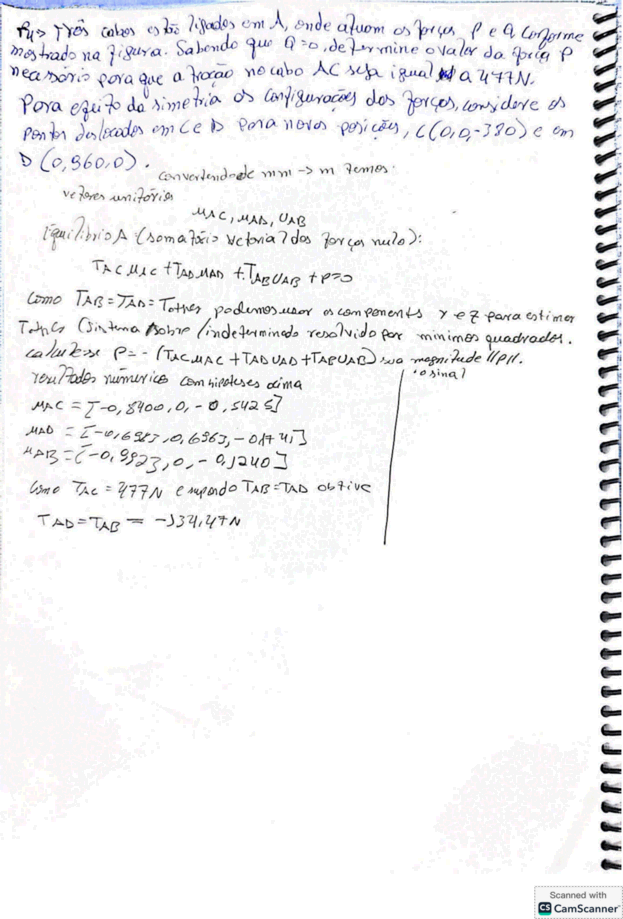 P4> Três cabos estão ligados em A, onde atuam os forças P e Q conforme
mostrado na figura. Sabendo que Q=0, determine o valor da força P
necessário para que a tração no cabo AC seja igual a 477N.
Para efeito da simetria os configurações dos forças, considere os
Pontos deslocados em C e D para novos posições, C(0,0,-380) e em
D (0,960,0).
convertendo de mm -> m temos:
vetores unitários
MAC, MAD, UAB
Equilíbrio A (somatório vetorial dos forças nulo):
TAC MAC + TAD MAD + TAB UAB + P=0
Como TAB=TAD=Tother podemos usar os components y e z para estimar
Tother (Sistema sobre/indeterminado resolvido por minimos quadrados.
calcula-se P=-(TAC MAC + TAD UAD + TAB UAB) sua magnitude ||P||.
resultados númerico com hipoteses acima
o sinal
MAC = [-0,8400,0,-0,5425]
MAD = [-0,6963,0,6963,-0,1741]
MAB = [-0,9923,0,-0,1240]
Como TAC = 477N e supondo TAB=TAD obtive
TAD=TAB = -134,47N
Scanned with
CS CamScanner